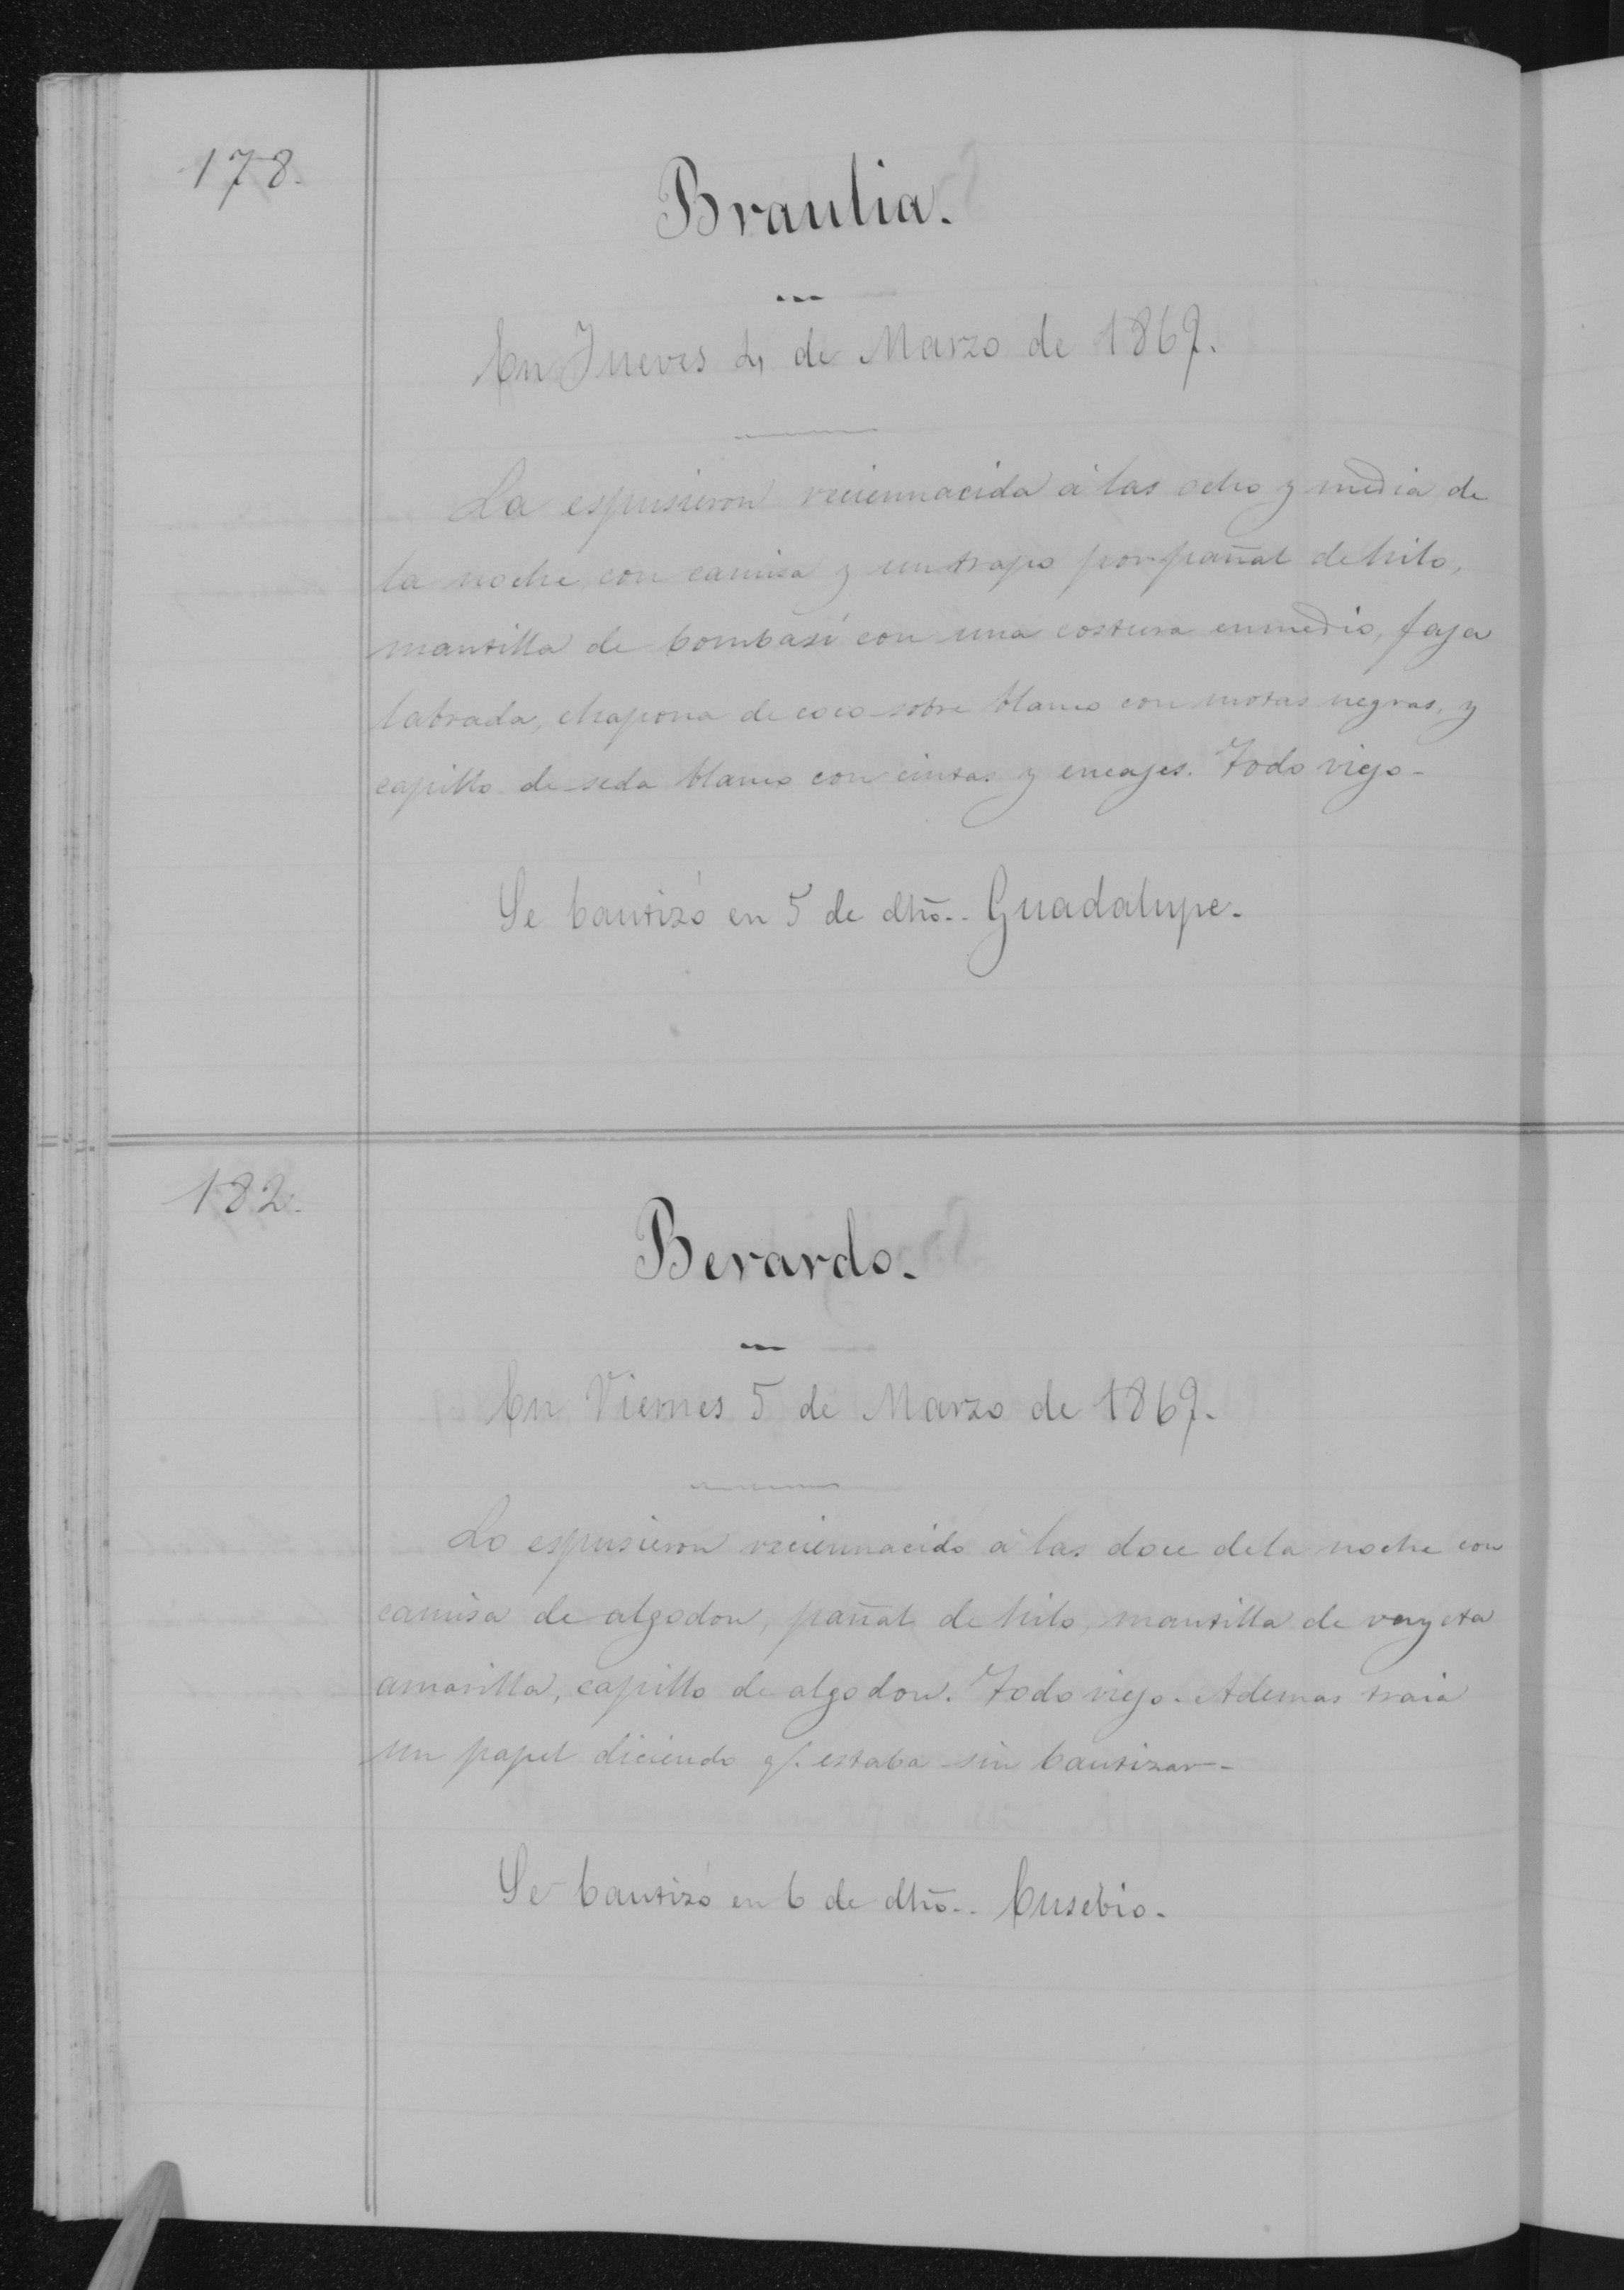 178.
Braulia.
En Jueves 4 de Marzo de 1869.
La espusieron reciennacida á las ocho y media de
la noche, con camisa y un trapo por pañal de hilo,
mantilla de bombasí con una costura enmedio, faja
labrada, chapona de coco sobre blanco con motas negras, y
capillo de seda blanco con cintas y encajes. Todo viejo-
Se bautizó en 5 de dho.. Guadalupe.
182.
Berardo.
En Viernes 5 de Marzo de 1869.
Lo espusieron reciennacido á las doce de la noche con
camisa de algodon, pañal de hilo, mantilla de vayeta
amarilla, capillo de algodon. Todo viejo. Ademas traia
un papel diciendo q. estaba sin bautizar-
Se bautizó en 6 de dho.. Eusebio.